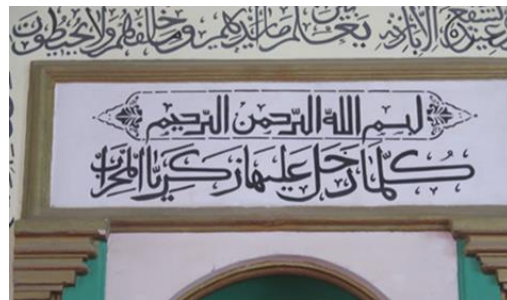 يشفع عنده إلا بإذنه يعلم ما بين أيديهم وما خلفهم ولا يحيطون
بسم الله الرحمن الرحيم
كُلَّمَا دَخَلَ عَلَيْهَا زَكَرِيَّا الْمِحْرَابَ